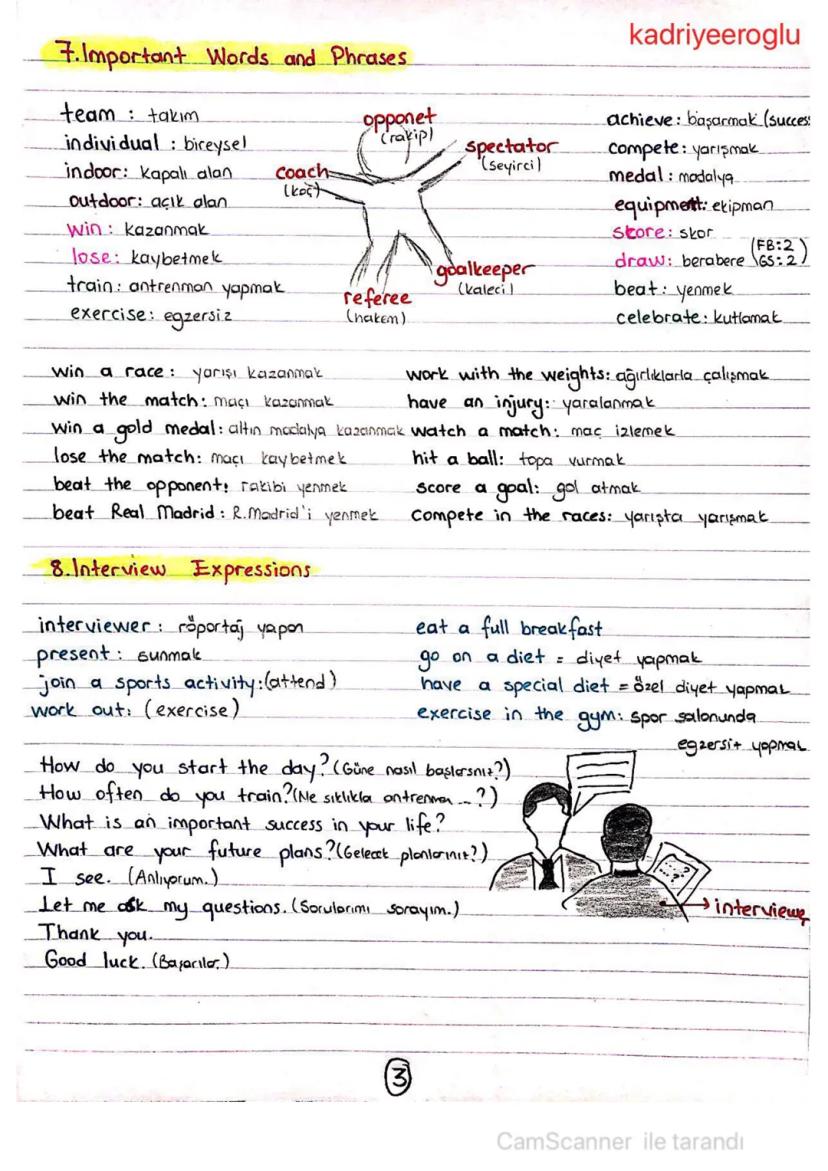 kadriyeeroglu
7.Important Words and Phrases
team : takım
individual : bireysel
indoor: kapalı alan
outdoor: açık alan
win: kazanmak
lose: kaybetmek
train: antrenman yapmak
exercise: egzersiz
opponet
(rakip)
spectator
(seyirci)
coach
(koç)
goalkeeper
(kaleci)
referee
(hakem)
achieve: başarmak (succes
compete: yarışmak
medal: madalya
equipment: ekipman
score: skor
draw: berabere (FB:2
GS:2)
beat: yenmek
celebrate: kutlamak
win a race: yarışı kazanmak
win the match: maçı kazanmak
win a gold medal: altın madalya kazanmak
lose the match: maçı kaybetmek
beat the opponent: rakibi yenmek
beat Real Madrid: R.Madrid'i yenmek
work with the weights: ağırlıklarla çalışmak
have an injury: yaralanmak
watch a match: maç izlemek
hit a ball: topa vurmak
score a goal: gol atmak
compete in the races: yarışta yarışmak
8.Interview Expressions
interviewer: röportaj yapan
present: sunmak
join a sports activity:(attend)
work out: (exercise)
eat a full breakfast
go on a diet = diyet yapmak
have a special diet = özel diyet yapmak
exercise in the gym: spor salonunda
egzersit yapmak
How do you start the day? (Güne nasıl başlarsınız?)
How often do you train? (Ne sıklıkla antrenman ...?)
What is an important success in your life?
What are your future plans? (Gelecek planlarınız?)
I see. (Anlıyorum.)
Let me ask my questions. (Sorularımı sorayım.)
Thank you.
Good luck. (Başarılar.)
...?
interviewe
3
CamScanner ile tarandı